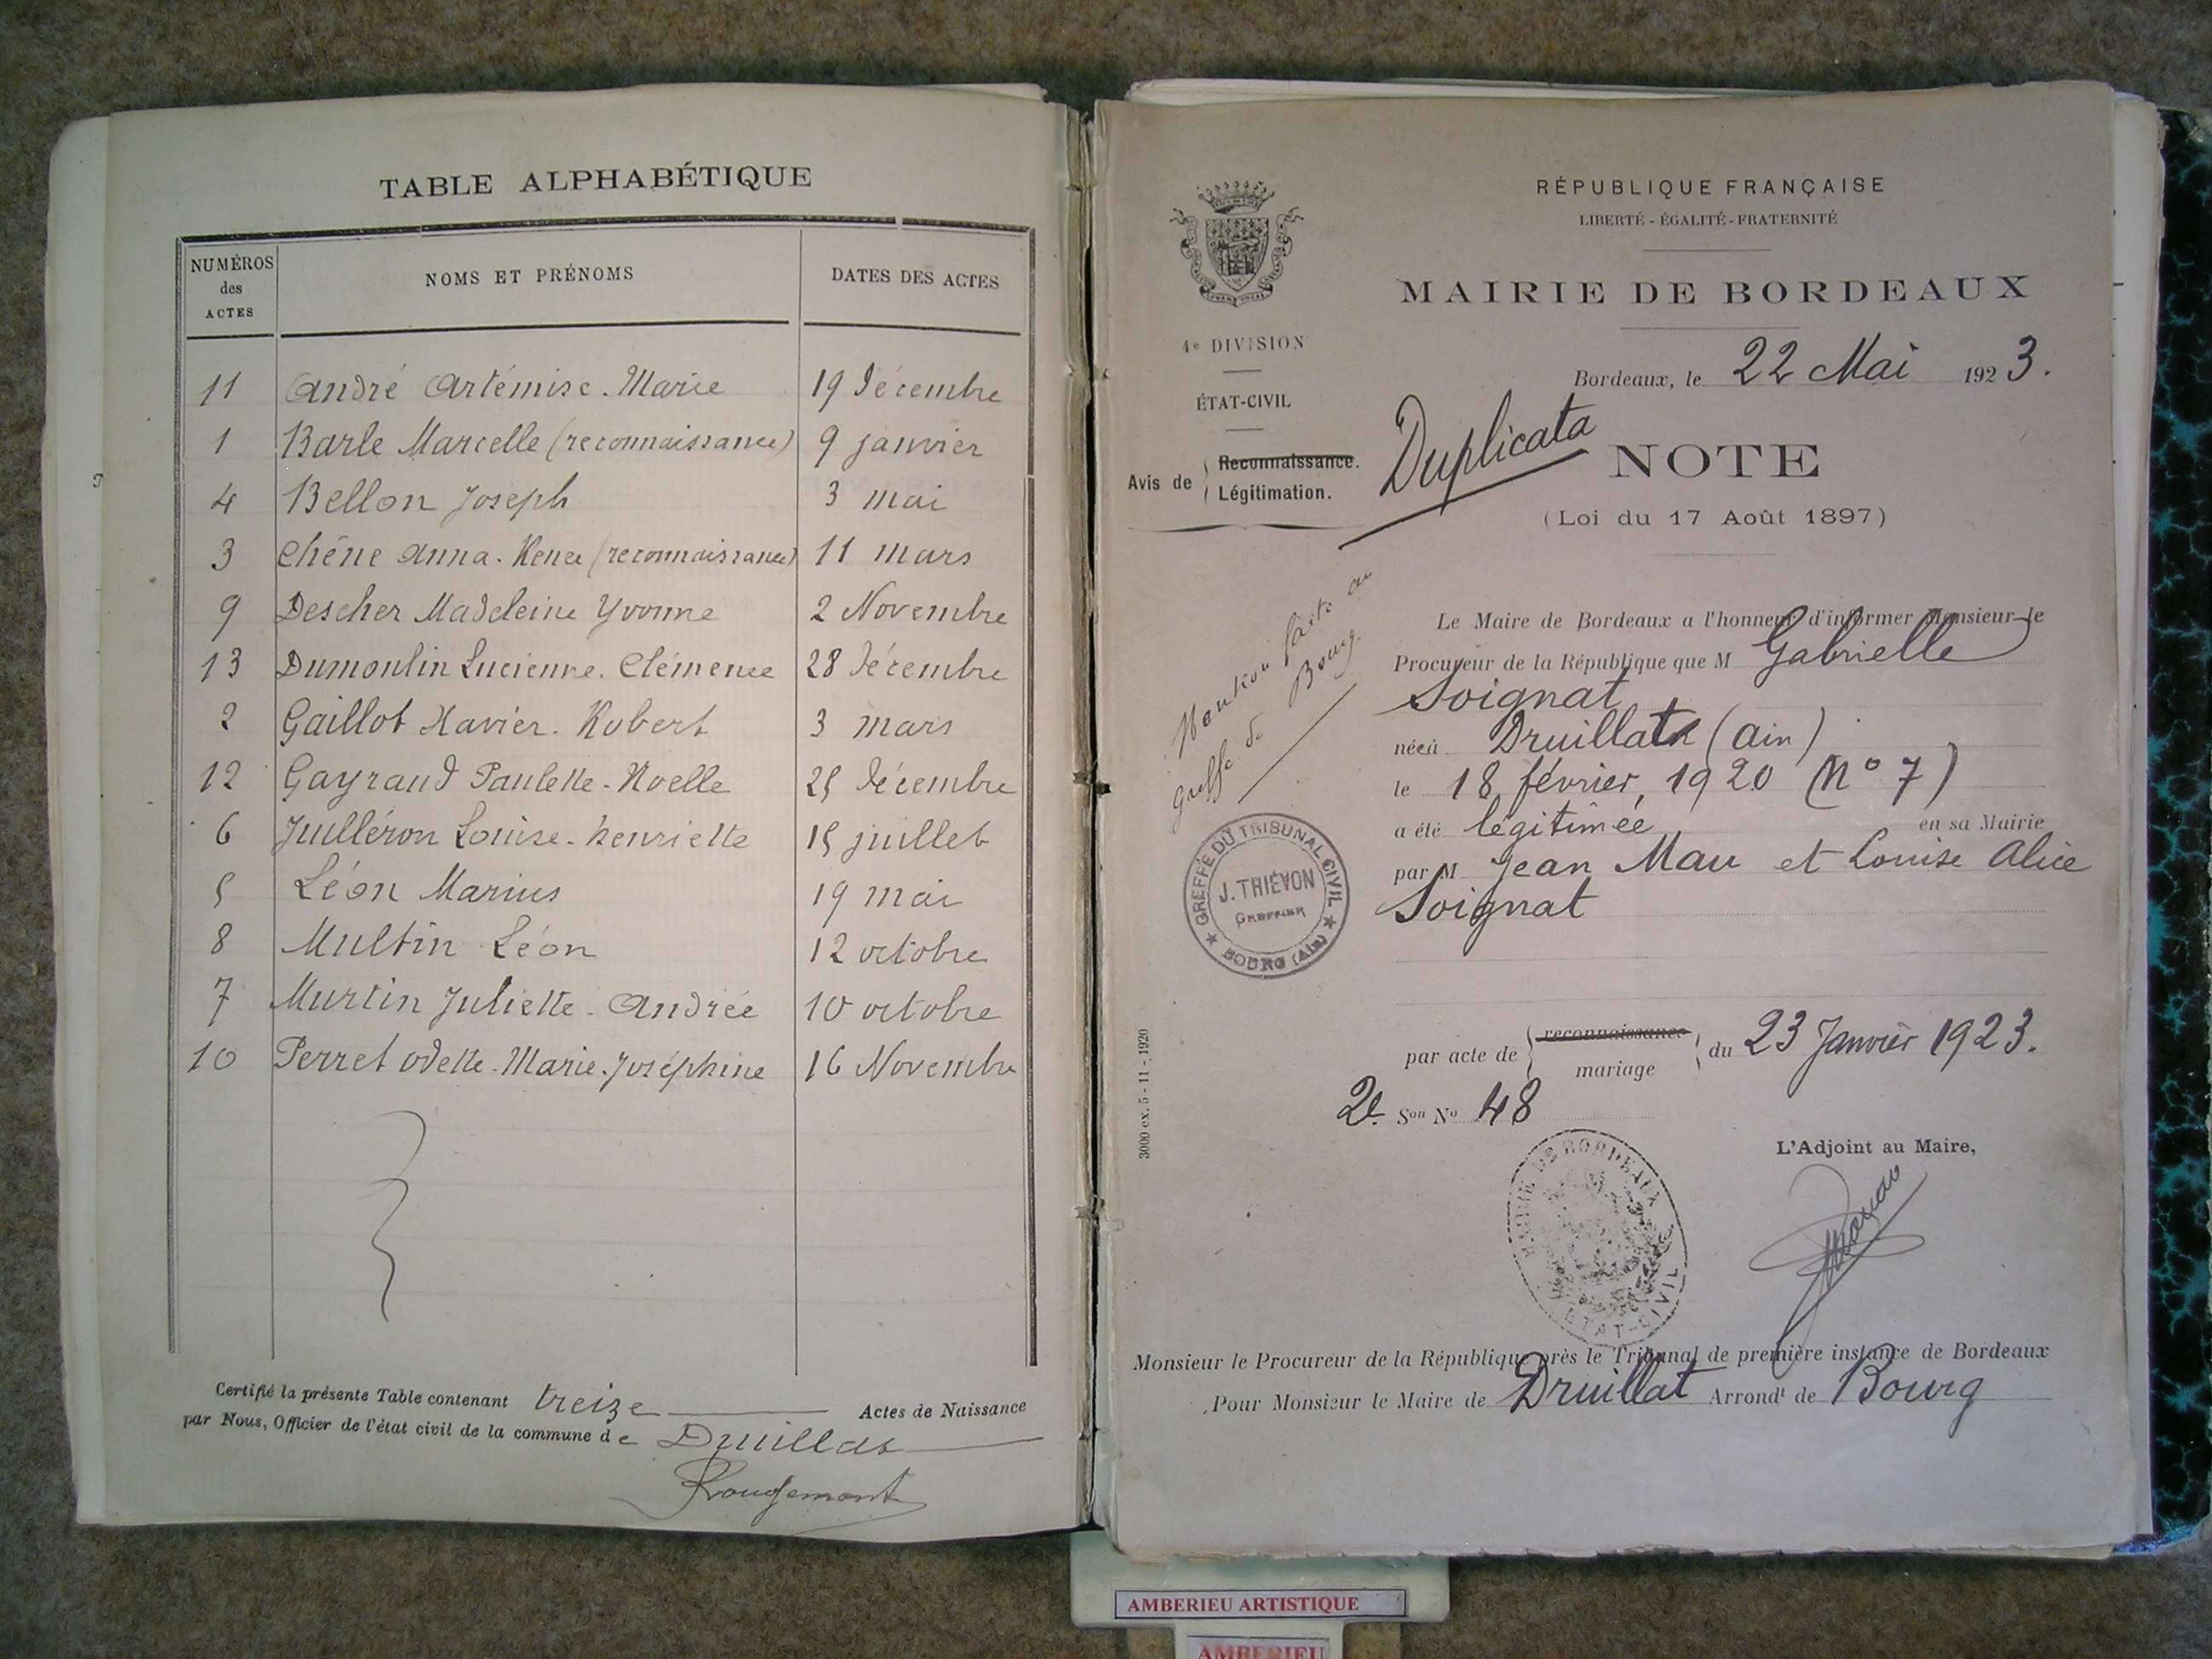 TABLE ALPHABÉTIQUE
NUMÉROS des ACTES NOMS ET PRÉNOMS DATES DES ACTES
11 André Artémise. Marie 19 décembre
1 Barle Marcelle (reconnaissance) 9 janvier
4 Bellon Joseph 3 mai
3 Chêne Anna. Renée (reconnaissance) 11 mars
9 Descher Madeleine Yvonne 2 Novembre
13 Dumoulin Lucienne. Clémence 28 décembre
2 Gaillot Xavier. Robert 3 mars
12 Gayraud Paulette-Noelle 25 décembre
6 Juilléron Louise-henriette 15 juillet
5 Léon Marius 19 mai
8 Multin Léon 12 octobre
7 Murtin Juliette-Andrée 10 octobre
10 Perret odette-Marie.Joséphine 16 Novembre
Certifié la présente Table contenant treize Actes de Naissance
par Nous, Officier de l'état civil de la commune de Druillat
Rougemont
RÉPUBLIQUE FRANÇAISE
LIBERTÉ - ÉGALITÉ - FRATERNITÉ
MAIRIE DE BORDEAUX
4e DIVISION
ÉTAT-CIVIL
Avis de Reconnaissance.
Légitimation.
Bordeaux, le 22 Mai 1923.
Duplicata
NOTE
(Loi du 17 Août 1897)
Mention faite au
greffe de Bourg.
GREFFE DU TRIBUNAL CIVIL
J. THIÉVON
GREFFIER
BOURG (Ain)
Le Maire de Bordeaux a l'honneur d'informer Monsieur le
Procureur de la République que M Gabrielle
Soignat
née à Druillat (Ain)
le 18 février 1920 (No 7)
a été légitimée en sa Mairie
par M Jean Mau et Louise Alice
Soignat
par acte de reconnaissance mariage du 23 Janvier 1923.
2e Son No 48
3000 ex. 5 - 11 - 1920
L'Adjoint au Maire,
MAIRIE DE BORDEAUX
ETAT-CIVIL
Monsieur le Procureur de la République près le Tribunal de première instance de Bordeaux
Pour Monsieur le Maire de Druillat Arrondt de Bourg
AMBERIEU ARTISTIQUE
AMBERIEU